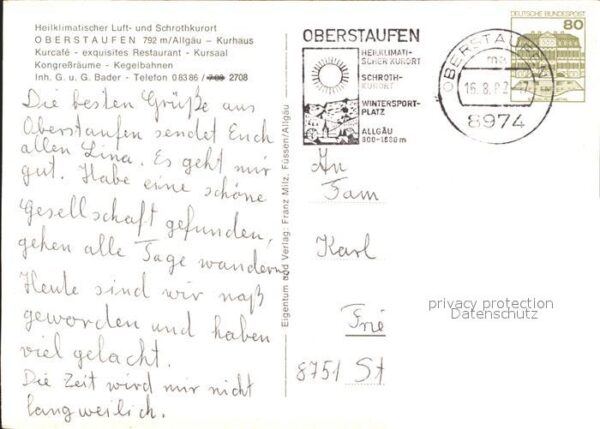 Heilklimatischer Luft- und Schrothkurort
OBERSTAUFEN 792 m/Allgäu – Kurhaus
Kurcafé - exquisites Restaurant - Kursaal
Kongreßräume - Kegelbahnen
Inh. G. u. G. Bader - Telefon 08386 / 2708
Die besten Grüße aus
Oberstaufen sendet Euch
allen Lina. Es geht mir
gut. Habe eine schöne
Gesellschaft gefunden,
gehen alle Tage wandern
Heute sind wir naß
geworden und haben
viel gelacht.
Die Zeit wird mir nicht
langweilich.
Eigentum und Verlag: Franz Milz, Füssen/Allgäu
OBERSTAUFEN
HEILKLIMATI-
SCHER KURORT
SCHROTH-
KURORT
WINTERSPORT-
PLATZ
ALLGÄU
800-1800 m
OBERSTAUFEN
ma
16.8.82
8974
DEUTSCHE BUNDESPOST
80
An
Fam
Karl
Frie
8751 St
privacy protection
Datenschutz